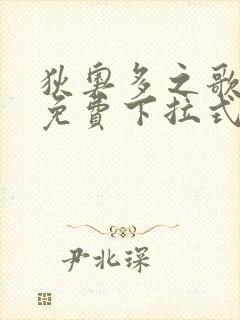 狄奥多之歌
免費下拉式
尹北琛